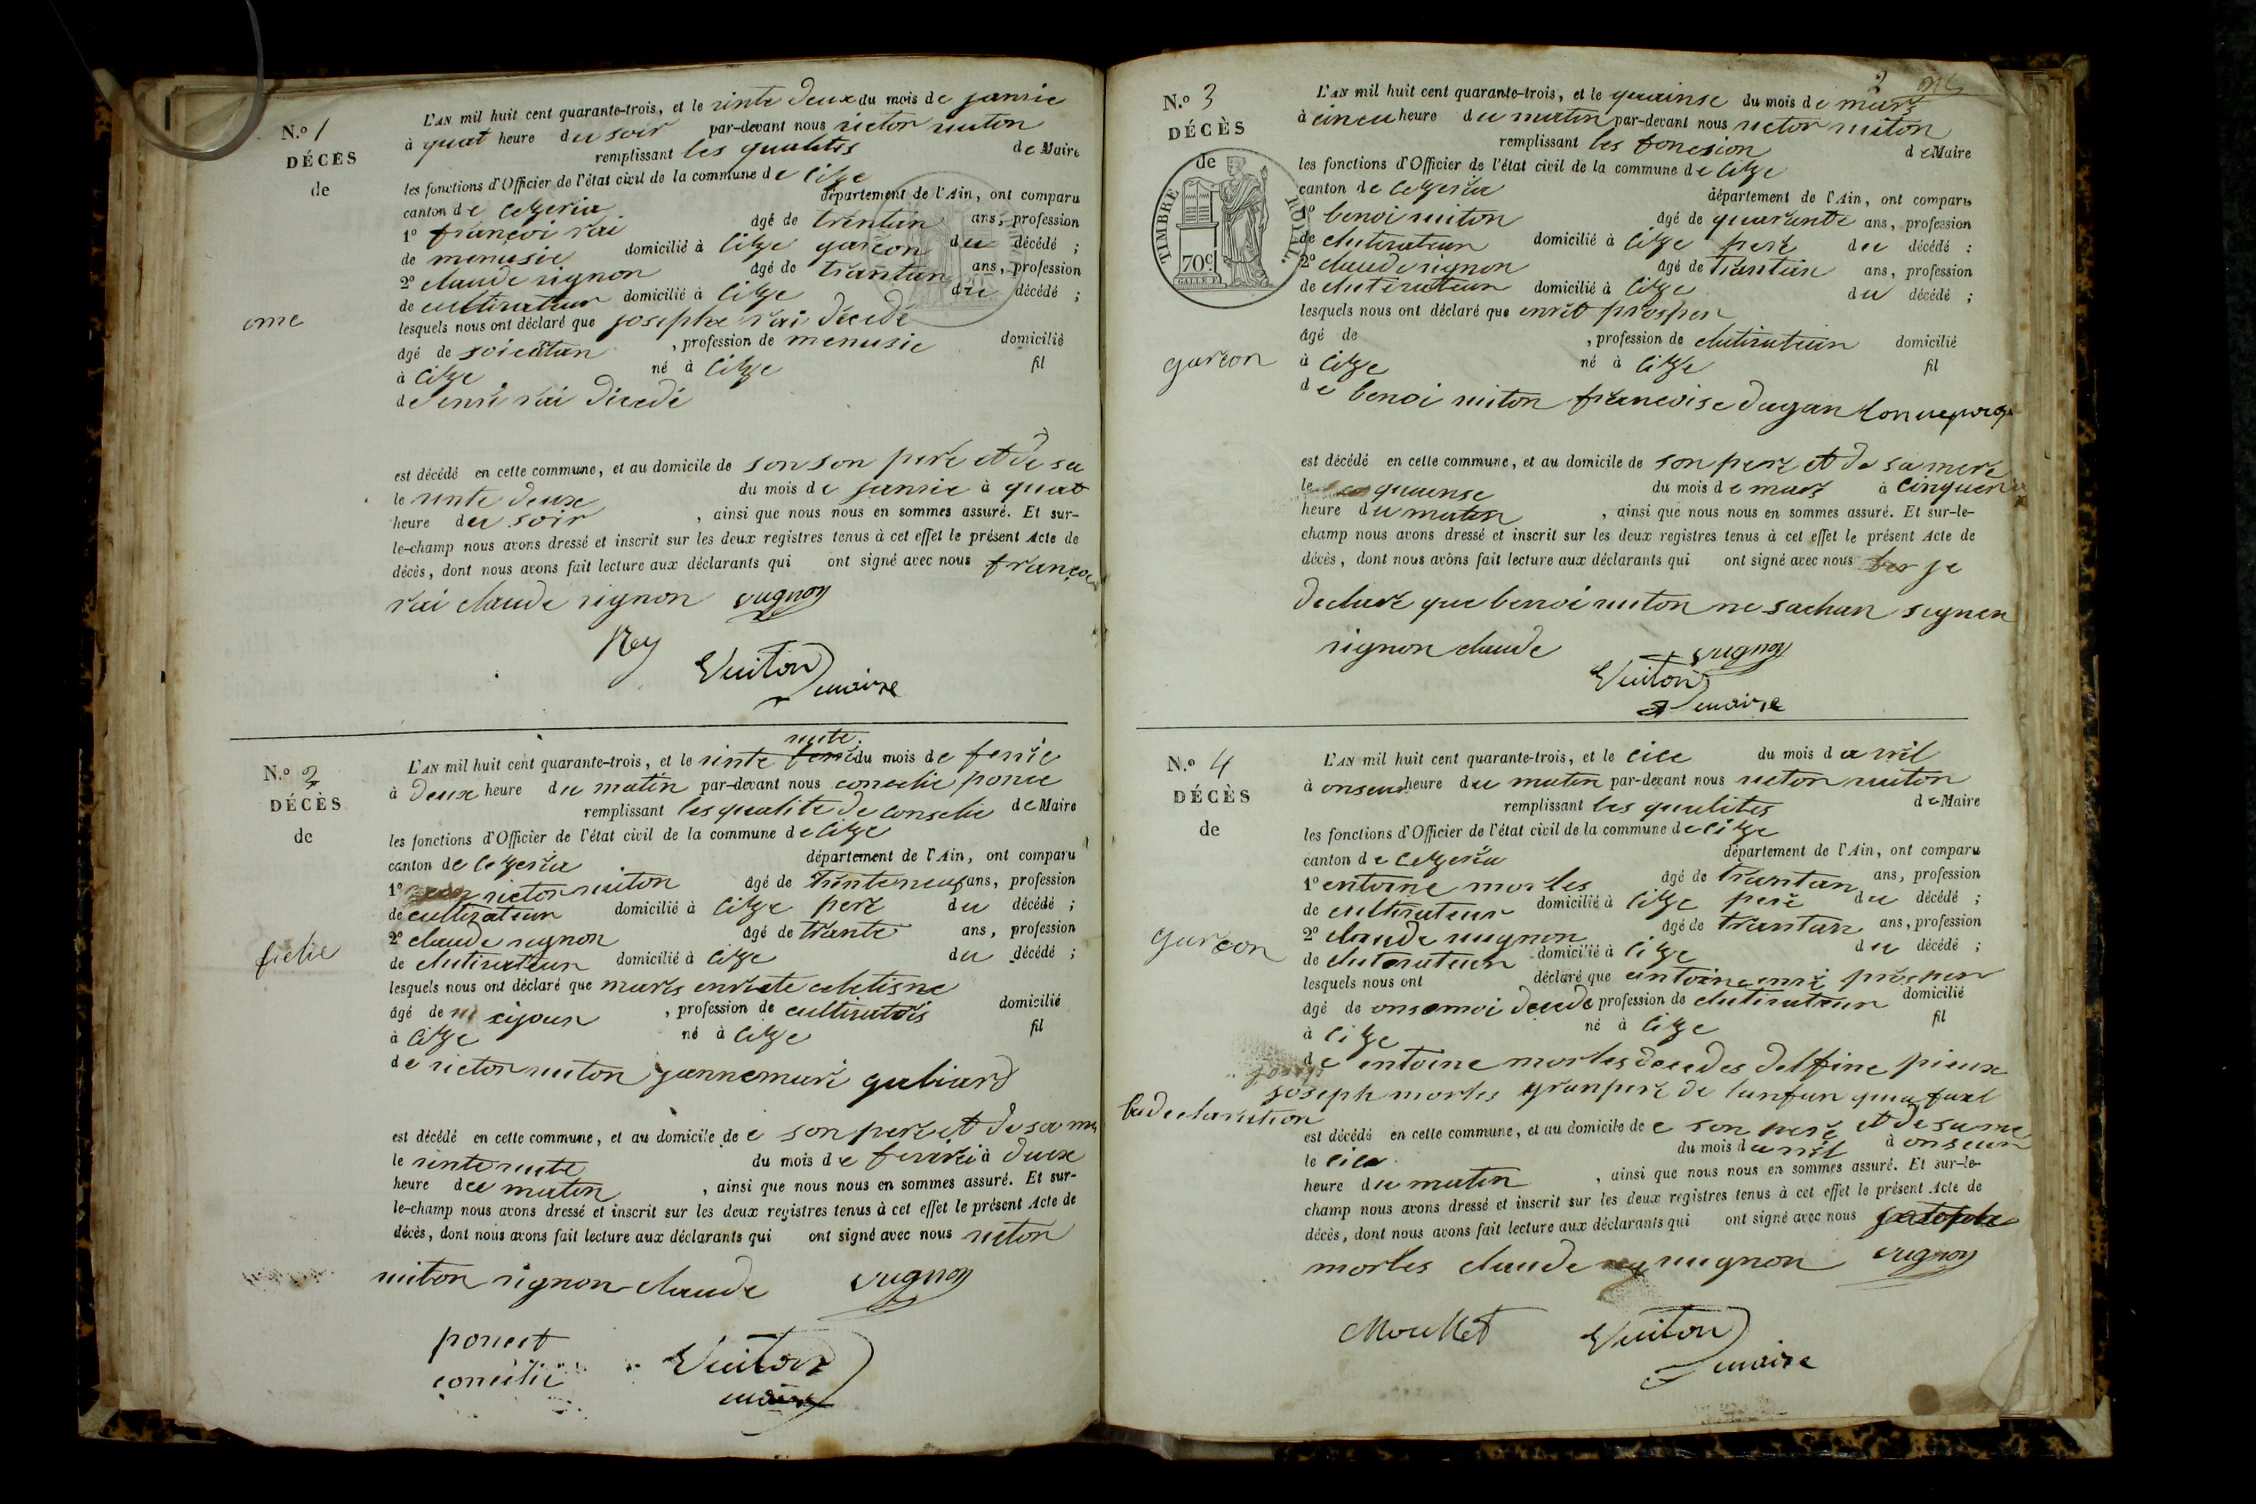 N.º 1
DÉCÈS
de
ome
L'AN mil huit cent quarante-trois, et le vinte deux du mois de janvie
à quat heure du soir par-devant nous victor vuiton
remplissant les qualités de Maire
les fonctions d'Officier de l'état civil de la commune de Cize
canton de Cezeria département de l'Ain, ont comparu
1º françoi rai âgé de trentun ans, profession
de menusie domicilié à Cize garçon du décédé ;
2º claude vignon âgé de trantun ans, profession
de cultivateur domicilié à Cize du décédé ;
lesquels nous ont déclaré que josephe rai décédé
âgé de , profession de menusie domicilié
à Cize né à Cize fil
de enri rai décédé
est décédé en cette commune, et au domicile de son son pere et de sa
le vinte deux du mois de janvie à quat
heure du soir , ainsi que nous nous en sommes assuré. Et sur-
le-champ nous avons dressé et inscrit sur les deux registres tenus à cet effet le présent Acte de
décès, dont nous avons fait lecture aux déclarants qui ont signé avec nous françoi
rai claude vignon vugnon
Rey
Vuiton
maire
N.º 2
DÉCÈS
de
fielie
vute
L'AN mil huit cent quarante-trois, et le vinte du mois de fevrie
à deux heure du matin par-devant nous conselie ponce
remplissant les qualite de conselie de Maire
les fonctions d'Officier de l'état civil de la commune de Cize
canton de Cezeria département de l'Ain, ont comparu
1º victor vuiton âgé de trinteneuf ans, profession
de cultivateur domicilié à Cize pere du décédé ;
2º claude vugnon âgé de trante ans, profession
de clutivateur domicilié à Cize du décédé ;
lesquels nous ont déclaré que maris enriete celetisne
âgé de sijour , profession de cultivatris domicilié
à Cize né à Cize fil
de victor vuiton jannemari gubiard
est décédé en cette commune, et au domicile de e son pere et de sa me
le vinte vute du mois de fevrie à deux
heure du matin , ainsi que nous nous en sommes assuré. Et sur-
le-champ nous avons dressé et inscrit sur les deux registres tenus à cet effet le présent Acte de
décès, dont nous avons fait lecture aux déclarants qui ont signé avec nous victon
vuiton vignon claude vugnon
poncet
conselie
Vuiton
maire
N.º 3
DÉCÈS
de
TIMBRE ROYAL.
70c
garcon
L'AN mil huit cent quarante-trois, et le quainse du mois de mars
à cincu heure du matin par-devant nous victor vuiton
remplissant les foncsion de Maire
les fonctions d'Officier de l'état civil de la commune de Cize
canton de Cezeria département de l'Ain, ont comparu
1º benoi vuiton âgé de quarante ans, profession
de clutivateur domicilié à Cize pere du décédé ;
2º claude vignon âgé de trantun ans, profession
de clutivateur domicilié à Cize du décédé ;
lesquels nous ont déclaré que enrit prosper
âgé de , profession de clutivateur domicilié
à Cize né à Cize fil
de benoi vuiton francoise dagan
est décédé en cette commune, et au domicile de son pere et de sa mere
le quainse du mois de mars à
heure du matin , ainsi que nous nous en sommes assuré. Et sur-le-
champ nous avons dressé et inscrit sur les deux registres tenus à cet effet le présent Acte de
décès, dont nous avons fait lecture aux déclarants qui ont signé avec nous je
declare que benoi vuiton ne sachan signer
vignon claude vugnon
Vuiton
maire
N.º 4
DÉCÈS
de
garcon
L'AN mil huit cent quarante-trois, et le cice du mois d avril
à onseur heure du matin par-devant nous victon vuiton
remplissant les qualites de Maire
les fonctions d'Officier de l'état civil de la commune de Cize
canton de Cezeria département de l'Ain, ont comparu
1º entoine morles âgé de trantun ans, profession
de cultivateur domicilié à Cize pere du décédé ;
2º claude vugnon âgé de trantun ans, profession
de clutivateur domicilié à Cize du décédé ;
lesquels nous ont déclaré que antoine enri prosper
âgé de onsemoi decede profession de clutivateur domicilié
à Cize né à Cize fil
de entoine morles decedes delfine pieux
joseph morles granpere de lanfan qui a fuel
la declaration
est décédé en cette commune, et au domicile de e son pere et de sa me
le cice du mois d avril à onseur
heure du matin , ainsi que nous nous en sommes assuré. Et sur-le-
champ nous avons dressé et inscrit sur les deux registres tenus à cet effet le présent Acte de
décès, dont nous avons fait lecture aux déclarants qui ont signé avec nous
morles claude vugnon vugnon
Vuiton
maire